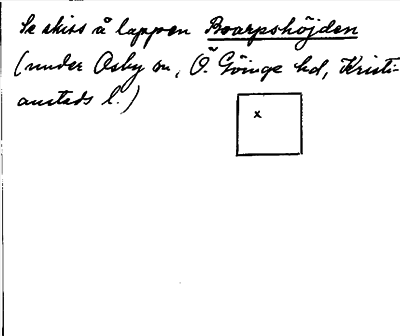 Se skiss å lappen Boarpshöjden
(under Osby sn, Ö. Göinge hd, Kristi-
anstads l.)
x